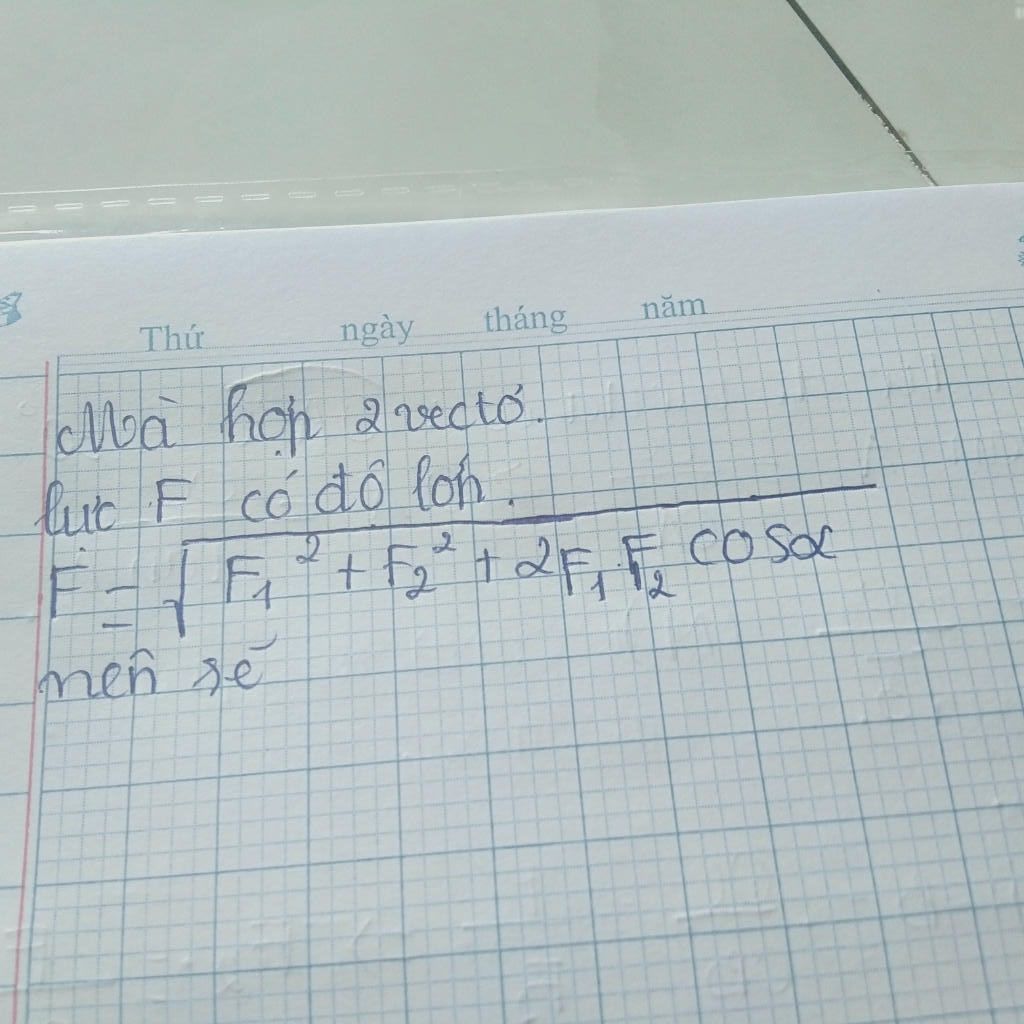 Thứ ngày tháng năm
Mà hợp 2 vectơ
lực F có độ lớn.
F = √F₁² + F₂² + 2F₁.F₂ cosα
nên sẽ